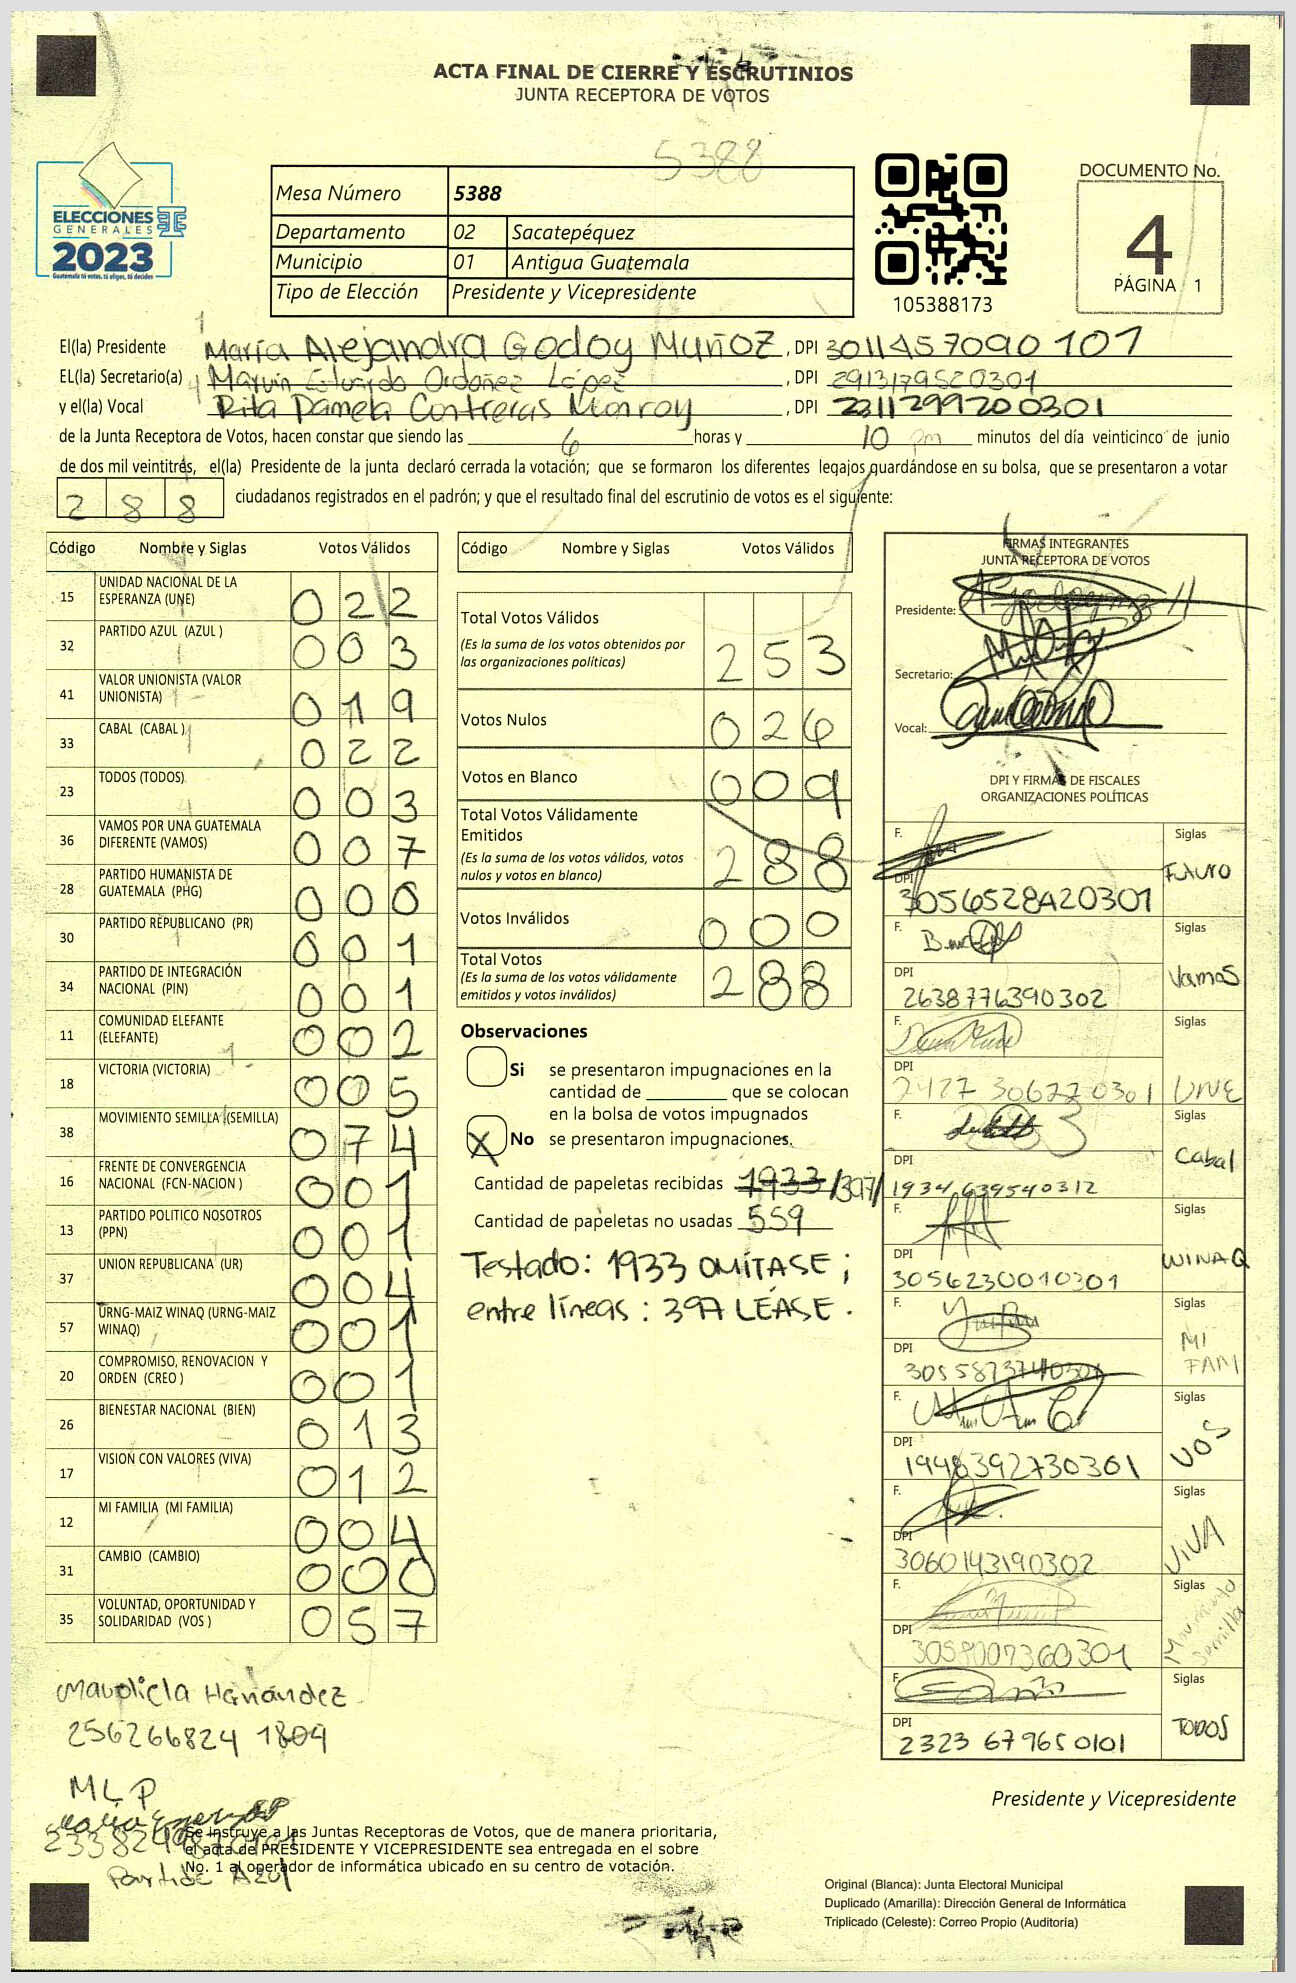 ACTA FINAL DE CIERRE Y ESCRUTINIOS
JUNTA RECEPTORA DE VOTOS
5388
ELECCIONES
GENERALES
2023
Guatemala tú votas, tú eliges, tú decides
Mesa Número 5388
Departamento 02 Sacatepéquez
Municipio 01 Antigua Guatemala
Tipo de Elección Presidente y Vicepresidente
105388173
DOCUMENTO No.
4
PÁGINA 1
El(la) Presidente María Alejandra Godoy Muñoz, DPI 3011457090101
EL(la) Secretario(a) Marvin Eduardo Ordoñez López, DPI 2913179520301
y el(la) Vocal Rita Pamela Contreras Monroy, DPI 2311299200301
de la Junta Receptora de Votos, hacen constar que siendo las 6 horas y 10 pm minutos del día veinticinco de junio
de dos mil veintitrés, el(la) Presidente de la junta declaró cerrada la votación; que se formaron los diferentes legajos guardándose en su bolsa, que se presentaron a votar
288 ciudadanos registrados en el padrón; y que el resultado final del escrutinio de votos es el siguiente:
Código Nombre y Siglas Votos Válidos
15 UNIDAD NACIONAL DE LA ESPERANZA (UNE) 022
32 PARTIDO AZUL (AZUL ) 003
41 VALOR UNIONISTA (VALOR UNIONISTA) 019
33 CABAL (CABAL ) 022
23 TODOS (TODOS) 003
36 VAMOS POR UNA GUATEMALA DIFERENTE (VAMOS) 007
28 PARTIDO HUMANISTA DE GUATEMALA (PHG) 000
30 PARTIDO REPUBLICANO (PR) 001
34 PARTIDO DE INTEGRACIÓN NACIONAL (PIN) 001
11 COMUNIDAD ELEFANTE (ELEFANTE) 002
18 VICTORIA (VICTORIA) 005
38 MOVIMIENTO SEMILLA (SEMILLA) 074
16 FRENTE DE CONVERGENCIA NACIONAL (FCN-NACION ) 001
13 PARTIDO POLITICO NOSOTROS (PPN) 001
37 UNION REPUBLICANA (UR) 004
57 URNG-MAIZ WINAQ (URNG-MAIZ WINAQ) 001
20 COMPROMISO, RENOVACION Y ORDEN (CREO ) 001
26 BIENESTAR NACIONAL (BIEN) 013
17 VISION CON VALORES (VIVA) 012
12 MI FAMILIA (MI FAMILIA) 004
31 CAMBIO (CAMBIO) 000
35 VOLUNTAD, OPORTUNIDAD Y SOLIDARIDAD (VOS ) 057
Código Nombre y Siglas Votos Válidos
Total Votos Válidos 253
(Es la suma de los votos obtenidos por
las organizaciones políticas)
Votos Nulos 026
Votos en Blanco 009
Total Votos Válidamente
Emitidos 288
(Es la suma de los votos válidos, votos
nulos y votos en blanco)
Votos Inválidos 000
Total Votos 288
(Es la suma de los votos válidamente
emitidos y votos inválidos)
Observaciones
Si se presentaron impugnaciones en la
cantidad de ________ que se colocan
en la bolsa de votos impugnados
X No se presentaron impugnaciones.
Cantidad de papeletas recibidas 1933 /397/
Cantidad de papeletas no usadas 559
Testado: 1933 OMÍTASE;
entre líneas: 397 LÉASE.
FIRMAS INTEGRANTES
JUNTA RECEPTORA DE VOTOS
Presidente:
Secretario:
Vocal:
DPI Y FIRMAS DE FISCALES
ORGANIZACIONES POLÍTICAS
F. Siglas
DPI
3056528420301
F. Siglas
Vamos
DPI
2638776390302
F. Siglas
UNE
DPI
2427 306770301
F. Siglas
Cabal
DPI
1934 639540312
F. Siglas
WINAQ
DPI
3056230010301
F. Siglas
MI
FAMI
DPI
3055873740301
F. Siglas
VOS
DPI
1998392730301
F. Siglas
VIVA
DPI
3060143190302
F. Siglas
Movimiento
Semilla
DPI
3059007360301
F. Siglas
TODOS
DPI
2323 679650101
Hernández
256266824 1809
MLP
Partido Azul
Presidente y Vicepresidente
Se instruye a las Juntas Receptoras de Votos, que de manera prioritaria,
el acta de PRESIDENTE Y VICEPRESIDENTE sea entregada en el sobre
No. 1 al operador de informática ubicado en su centro de votación.
Original (Blanca): Junta Electoral Municipal
Duplicado (Amarilla): Dirección General de Informática
Triplicado (Celeste): Correo Propio (Auditoría)